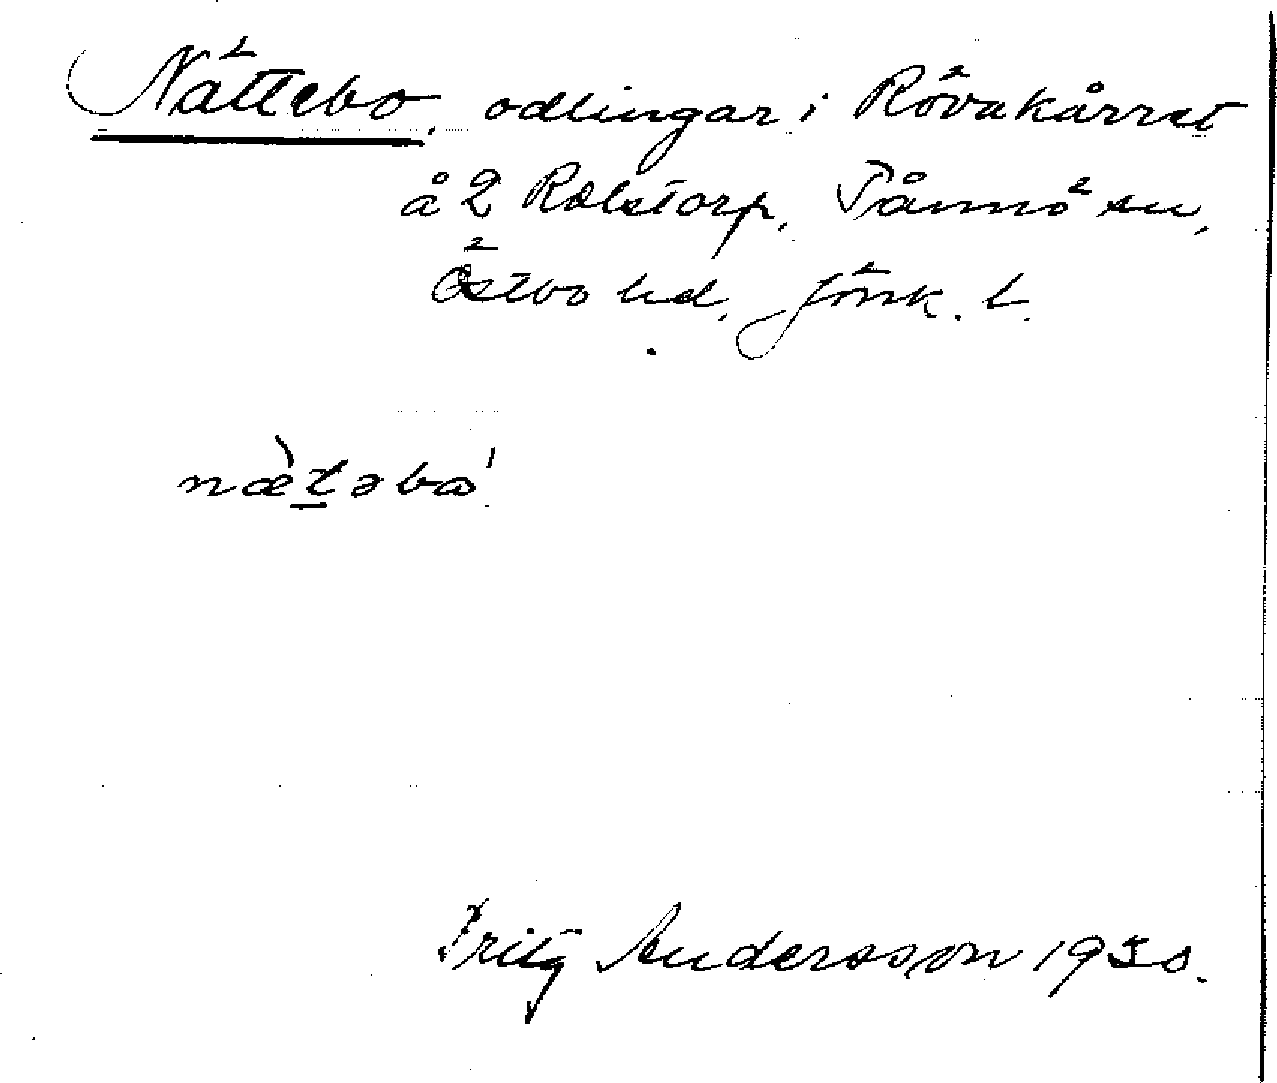 Nättebo, odlingar i Rövakärret
å 2 Rolstorp, Tånnö sn,
Östbo hd, Jönk. l.
næ̀təbo'
Fritz Andersson 1930.